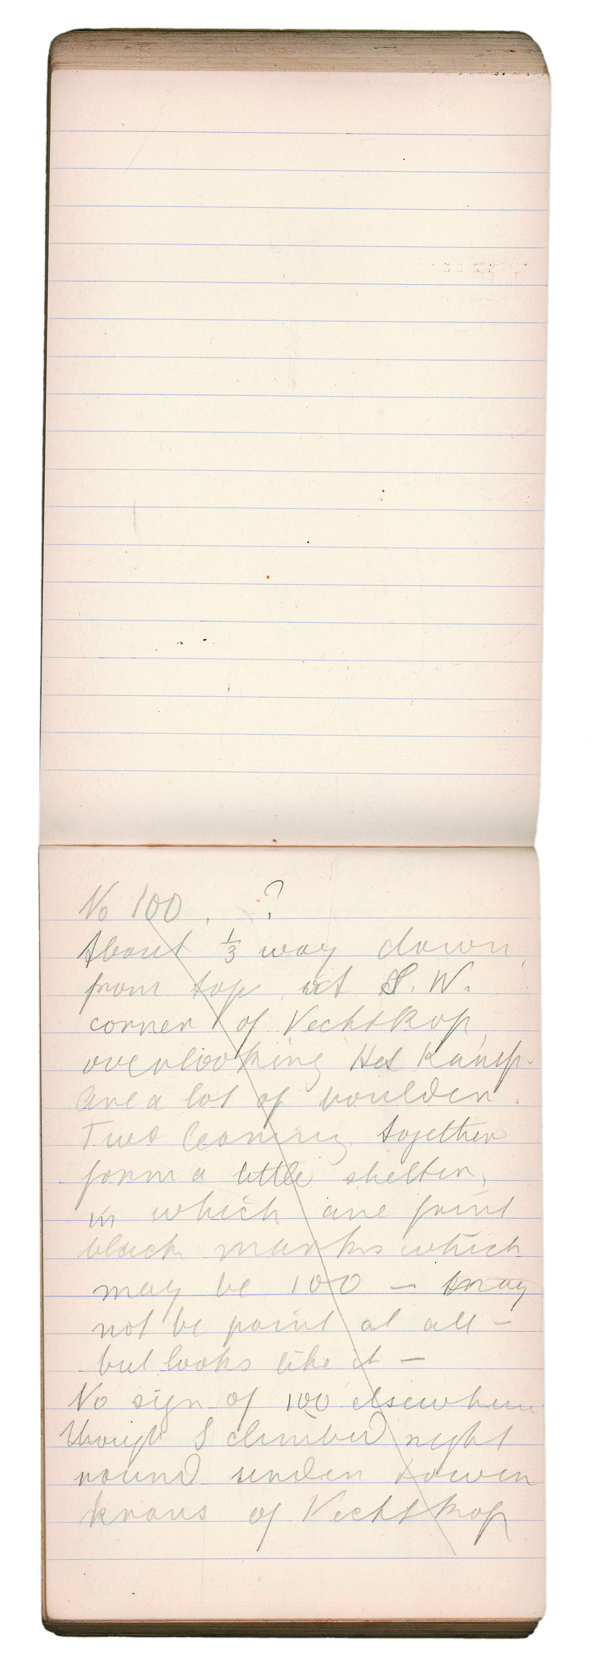 No 100. ?
About ⅓ way down
from top at S.W.
corner of Vechtkop
overlooking Het Kamp.
are a lot of boulders.
Two leaning together
form a little shelter,
in which are faint
black marks which
may be 100 — may
not be paint at all —
but looks like it —
No sign of 100 elsewhere
though I climbed right
round under lower
krans of Vechtkop